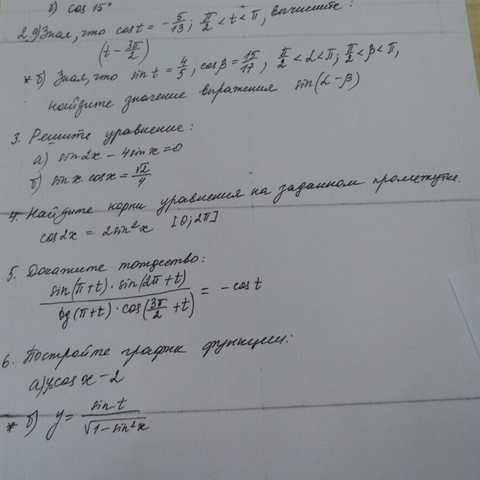 в) cos 15°
2. а) Зная, что cos t = -5/13; π/2 < t < π, вычислите:
(t - 3π/2)
* б) Зная, что sin t = 4/5, cos β = 15/17, π/2 < α < π; π/2 < β < π,
найдите значение выражения sin(α - β)
3. Решите уравнение:
а) sin 2x - 4 sin x = 0
б) sin x cos x = √2/4
4. Найдите корни уравнения на заданном промежутке.
cos 2x = 2 sin² x [0; 2π]
5. Докажите тождество:
sin(π+t) · sin(2π+t) / tg(π+t) · cos(3π/2 + t) = - cos t
6. Постройте график функции:
а) y cos x - 2
* б) y = sin t / √1 - sin² x